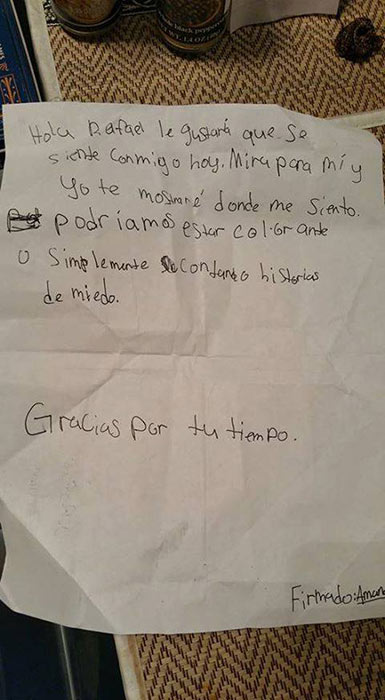 black pepper
NET WT.
Hola Rafael le gustará que se
siente conmigo hoy. Mira para mí y
yo te mostraré donde me siento.
podríamos estar colorante
o simplemente contando historias
de miedo.
Gracias por tu tiempo.
Firmado: Aman